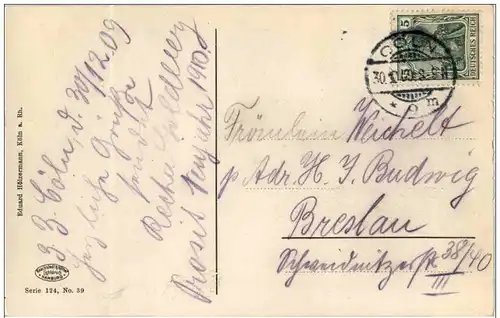 z. Z. Cöln, d. 30/12 09
Herzliche Grüße
sendet
Prosit Neujahr 1910!
COELN
30.12.09
* 9 m
5
DEUTSCHES REICH
Fräulein Weichelt
p Adr. H. J. Budwig
Breslau
Schweidnitzerstr. 38/40
III
Eduard Hödnermann, Köln a. Rh.
Serie 174, No. 39